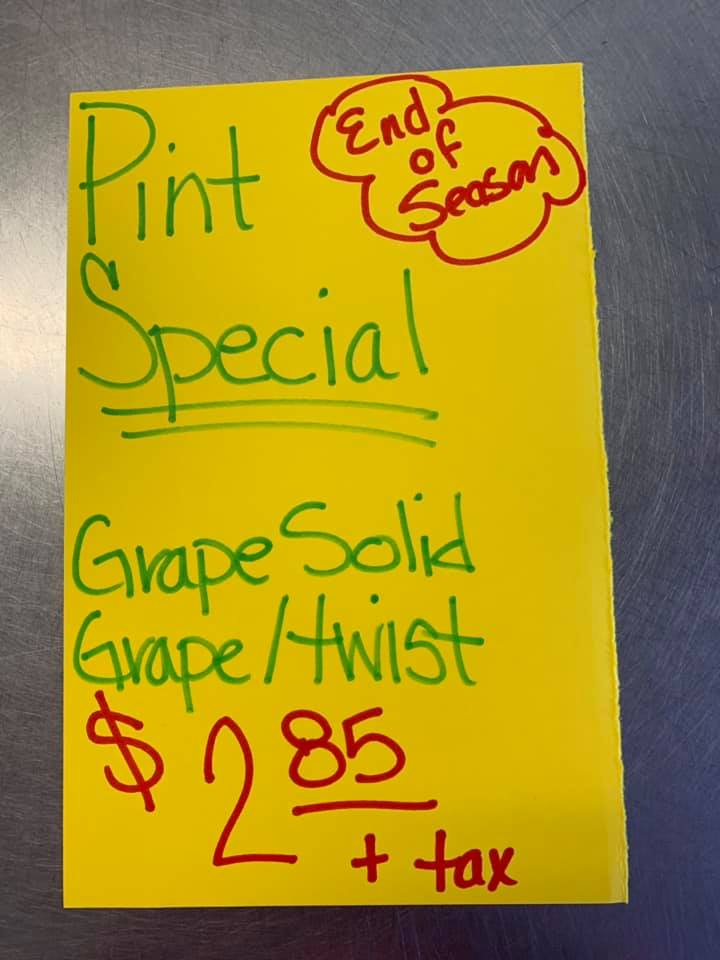 Pint
End
of
Season
Special
Grape Solid
Grape/twist
$2 85
+ tax